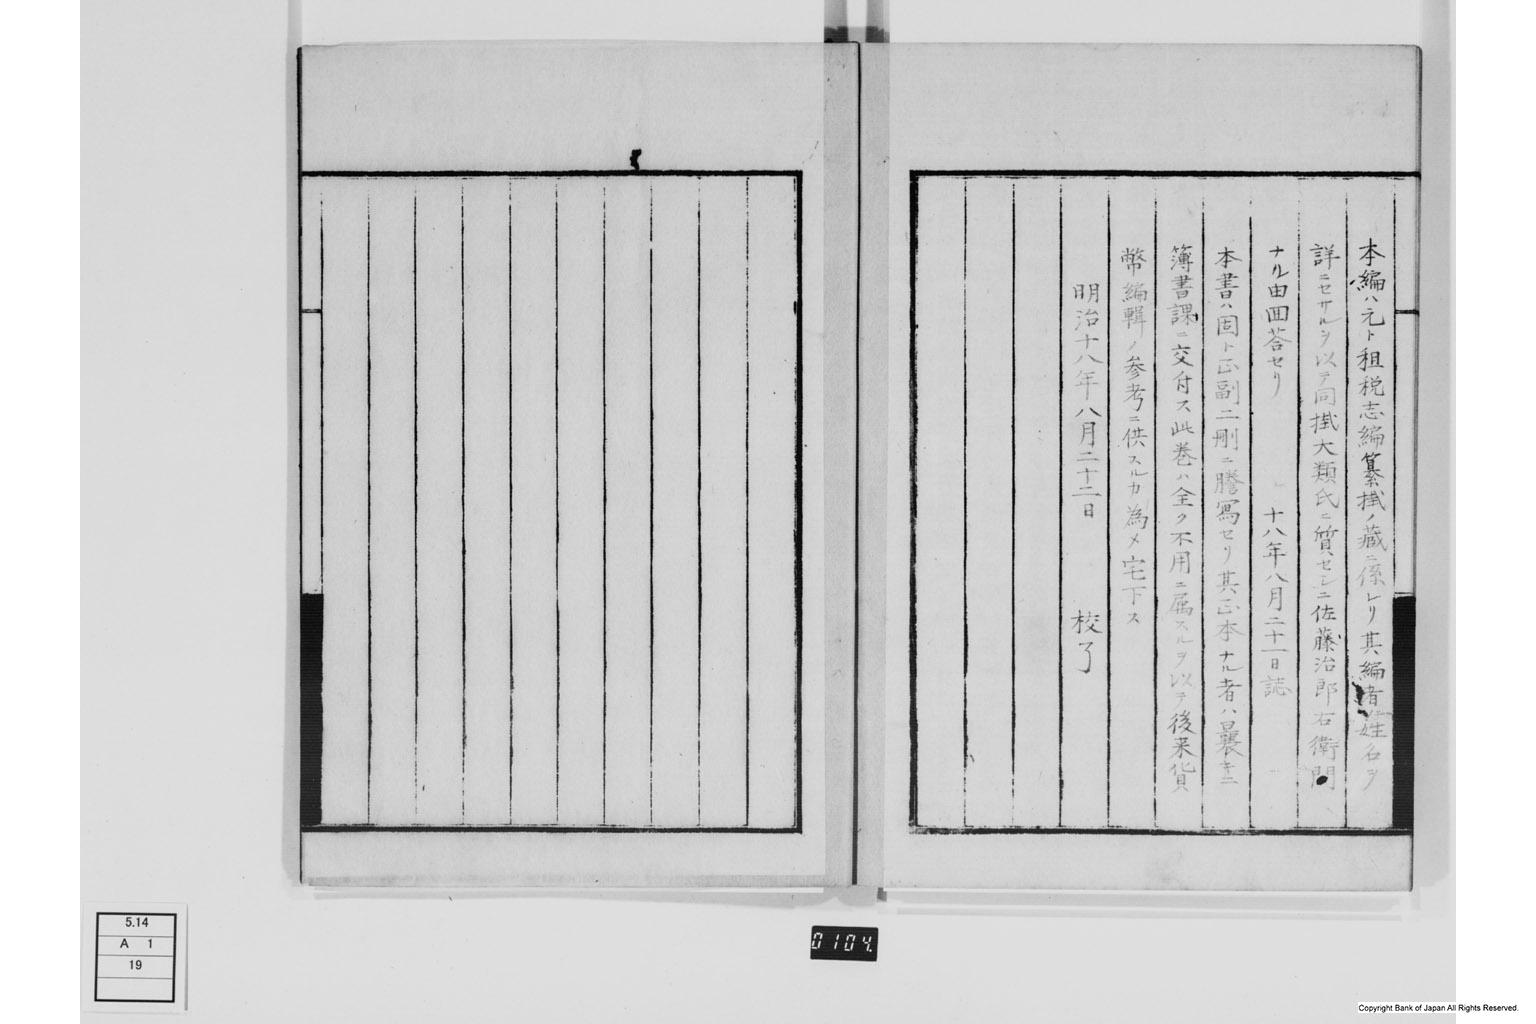 本編ハ元ト租税志編纂掛ノ蔵ニ係レリ其編者姓名ヲ
詳ニセサルヲ以テ同掛大類氏ニ質セシニ佐藤治郎右衛門
ナル由回荅セリ 十八年八月二十一日誌
本書ハ固ト正副二刪ニ謄寫セリ其正本ナル者ハ曩キニ
簿書課ニ交付ス此巻ハ全ク不用ニ属スルヲ以テ後来貨
幣編輯ノ参考ニ供スルカ為メ宅下ス
明治十八年八月二十二日 校了
5.14
A 1
19
0104
Copyright Bank of Japan All Rights Reserved.